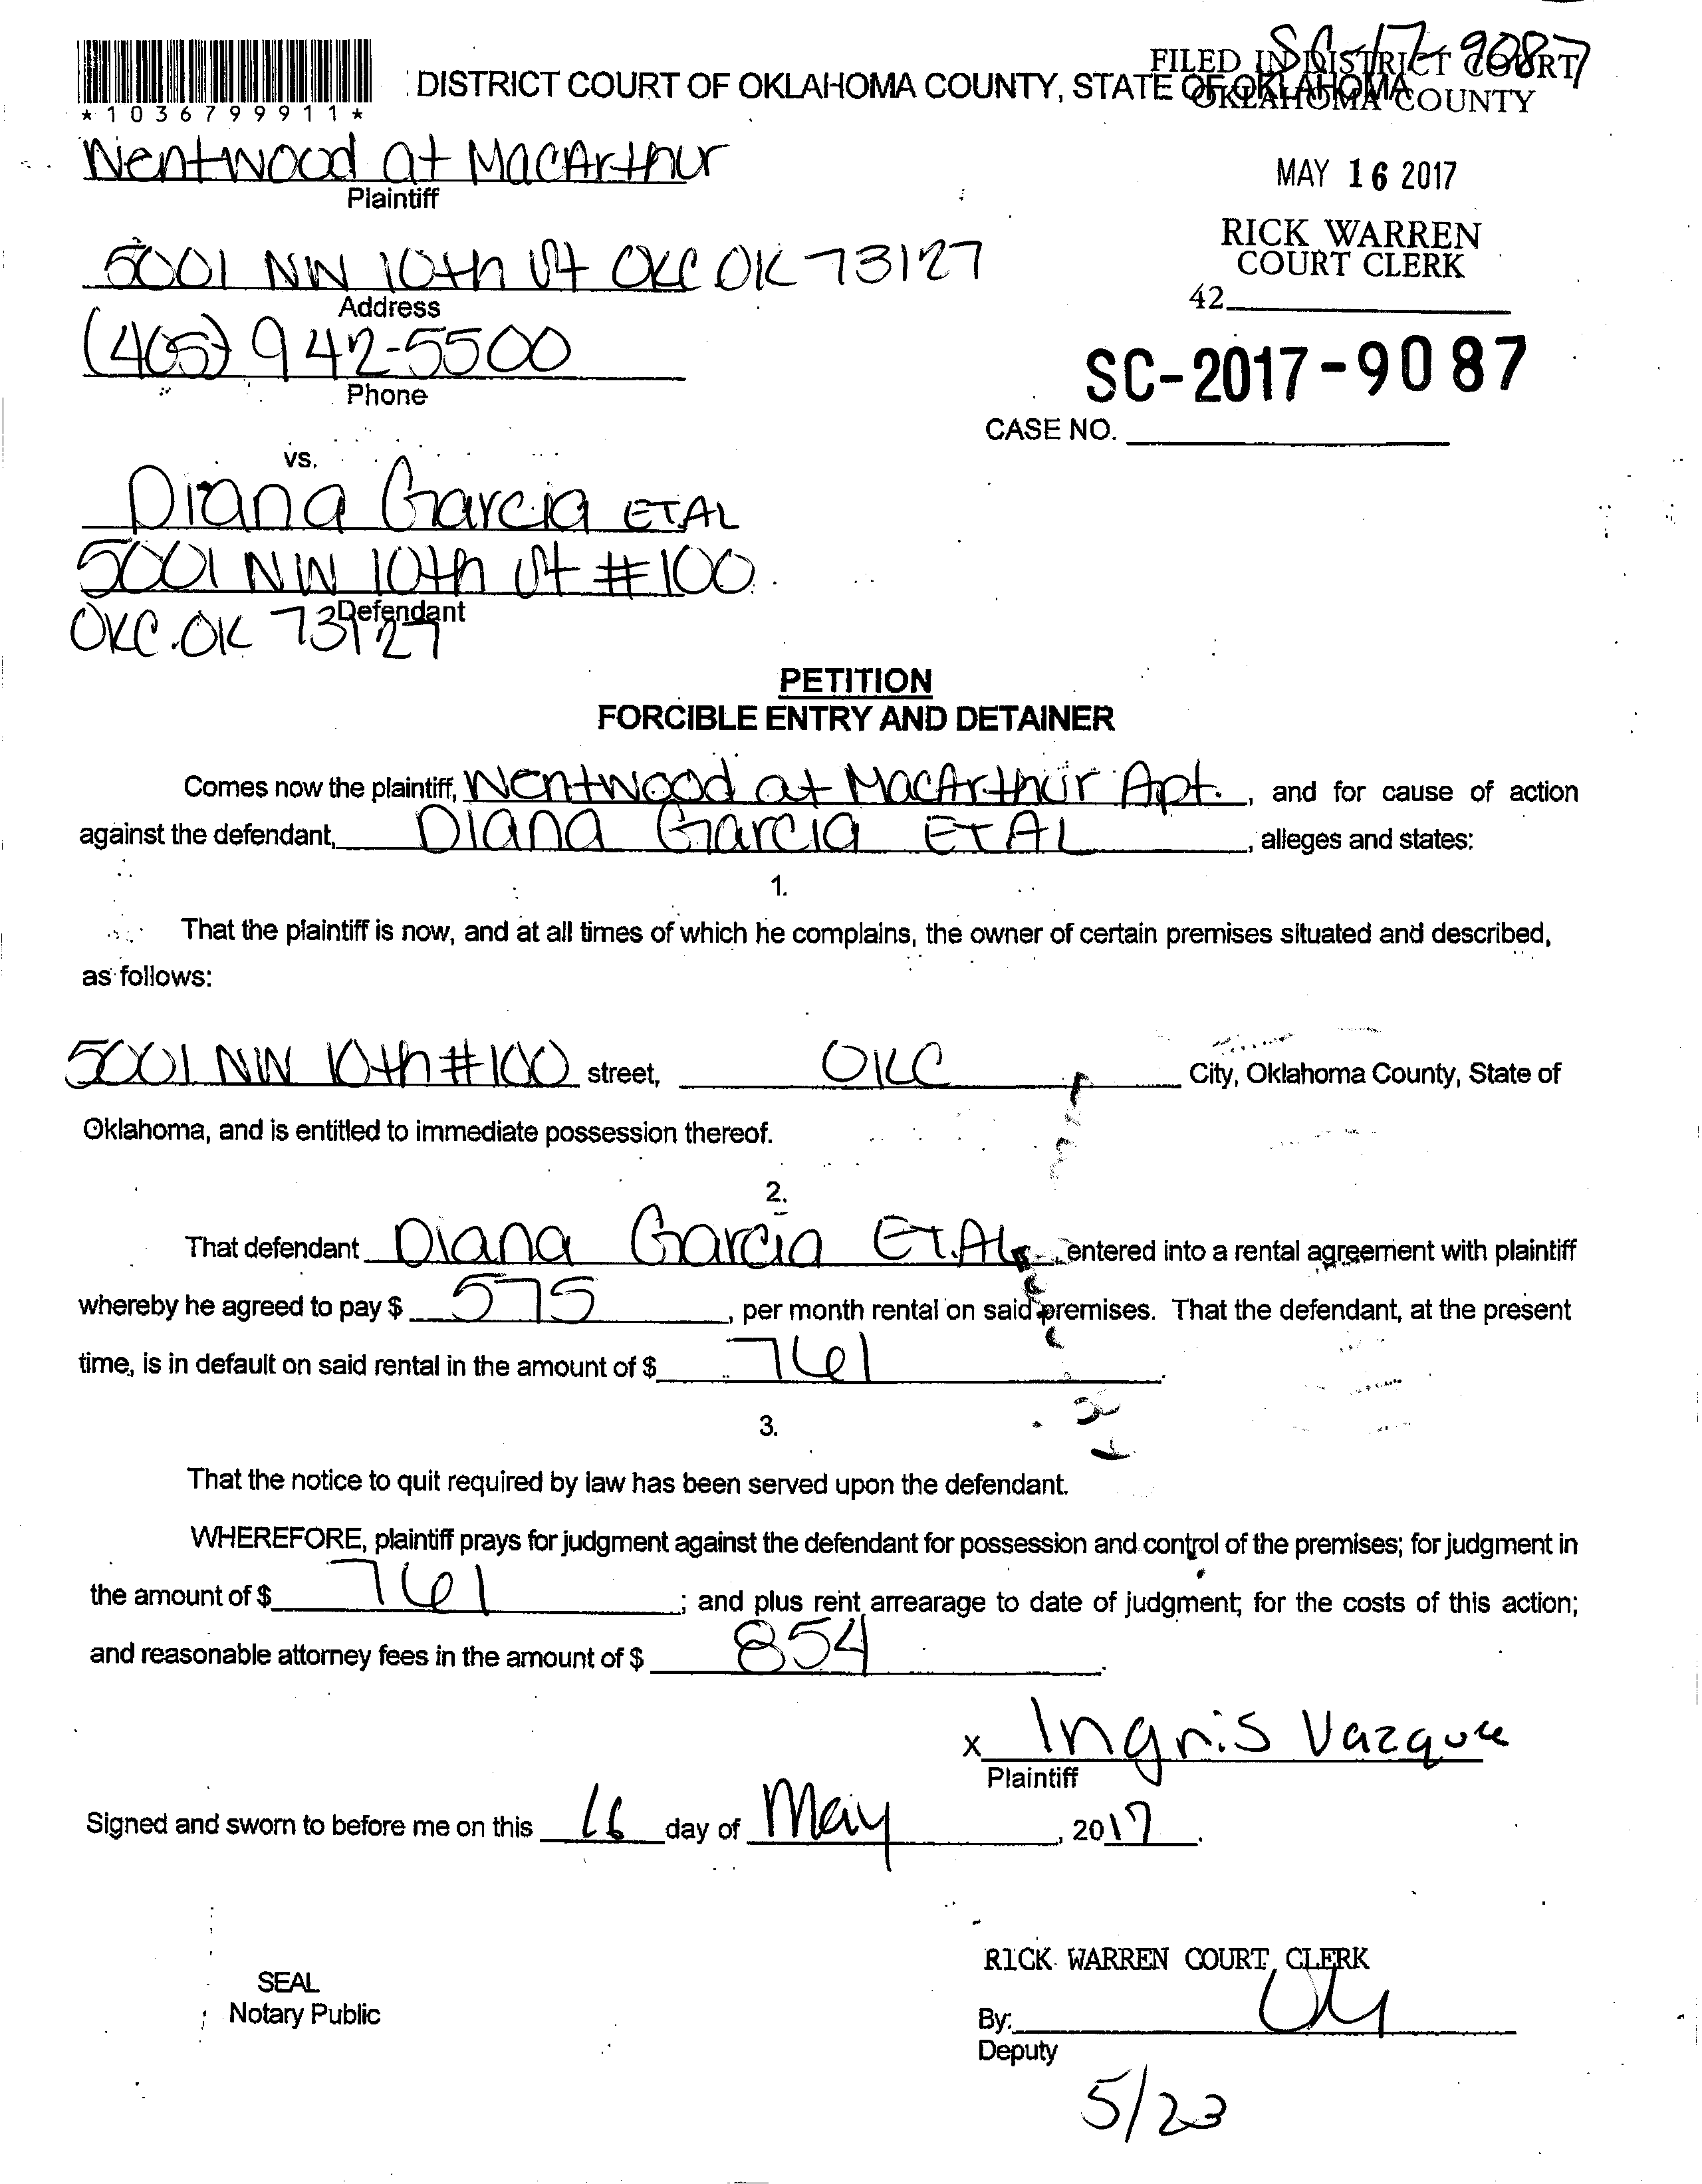 SC-17-9087
FILED IN DISTRICT COURT
DISTRICT COURT OF OKLAHOMA COUNTY, STATE OF OKLAHOMA
OKLAHOMA COUNTY
*1036799911*
Wentwood at MacArthur
Plaintiff
MAY 16 2017
RICK WARREN
COURT CLERK
42
5001 NW 10th St OKC OK 73127
Address
(405) 942-5500
Phone
SC-2017-9087
CASE NO.
vs.
Diana Garcia ETAL
5001 NW 10th St #100
Defendant
OKC.OK 73127
PETITION
FORCIBLE ENTRY AND DETAINER
Comes now the plaintiff, Wentwood at MacArthur Apt., and for cause of action
against the defendant, Diana Garcia ETAL, alleges and states:
1.
That the plaintiff is now, and at all times of which he complains, the owner of certain premises situated and described,
as follows:
5001 NW 10th #100 street, OKC City, Oklahoma County, State of
Oklahoma, and is entitled to immediate possession thereof.
2.
That defendant Diana Garcia ET.AL entered into a rental agreement with plaintiff
whereby he agreed to pay $ 575, per month rental on said premises. That the defendant, at the present
time, is in default on said rental in the amount of $ 761.
3.
That the notice to quit required by law has been served upon the defendant.
WHEREFORE, plaintiff prays for judgment against the defendant for possession and control of the premises; for judgment in
the amount of $ 761; and plus rent arrearage to date of judgment; for the costs of this action;
and reasonable attorney fees in the amount of $ 854.
x Ingris Vazque
Plaintiff
Signed and sworn to before me on this 16 day of May, 2017.
RICK WARREN COURT CLERK
SEAL
Notary Public
By:
Deputy
5/23